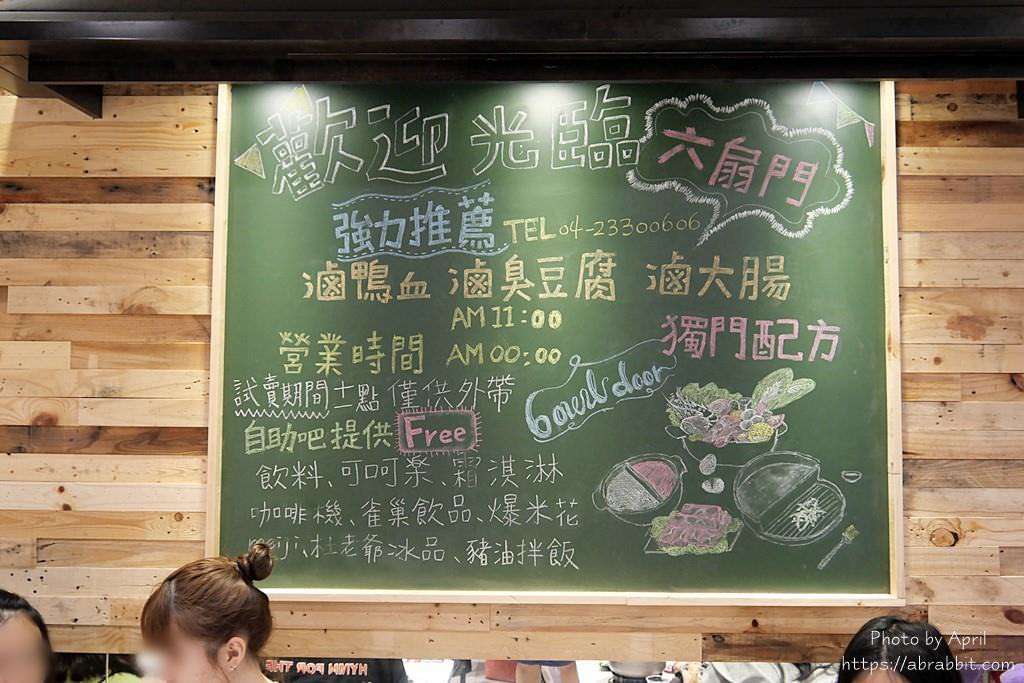 歡迎光臨
六扇門
強力推薦
TEL 04-23300606
滷鴨血 滷臭豆腐 滷大腸
AM 11:00
營業時間 AM 00:00
獨門配方
試賣期間十一點 僅供外帶
自助吧提供 Free
飲料、可呵棻、霜淇淋
咖啡機、雀巢飲品、爆米花
meiji、杜老爺冰品、豬油拌飯
door
HYMN FOR THE
Photo by April
https://abrabbit.com